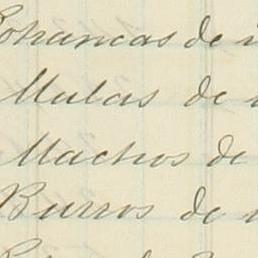 Potrancas de
Mulas de
Machos de
Burros de